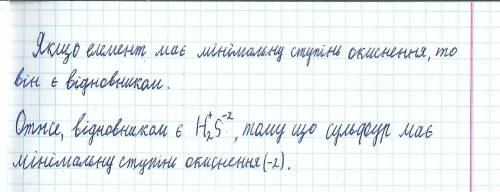 Якщо елемент має мінімальну ступінь окиснення, то
він є відновником.
Отже, відновником є H₂⁺S⁻², тому що сульфур має
мінімальну ступінь окиснення (-2).